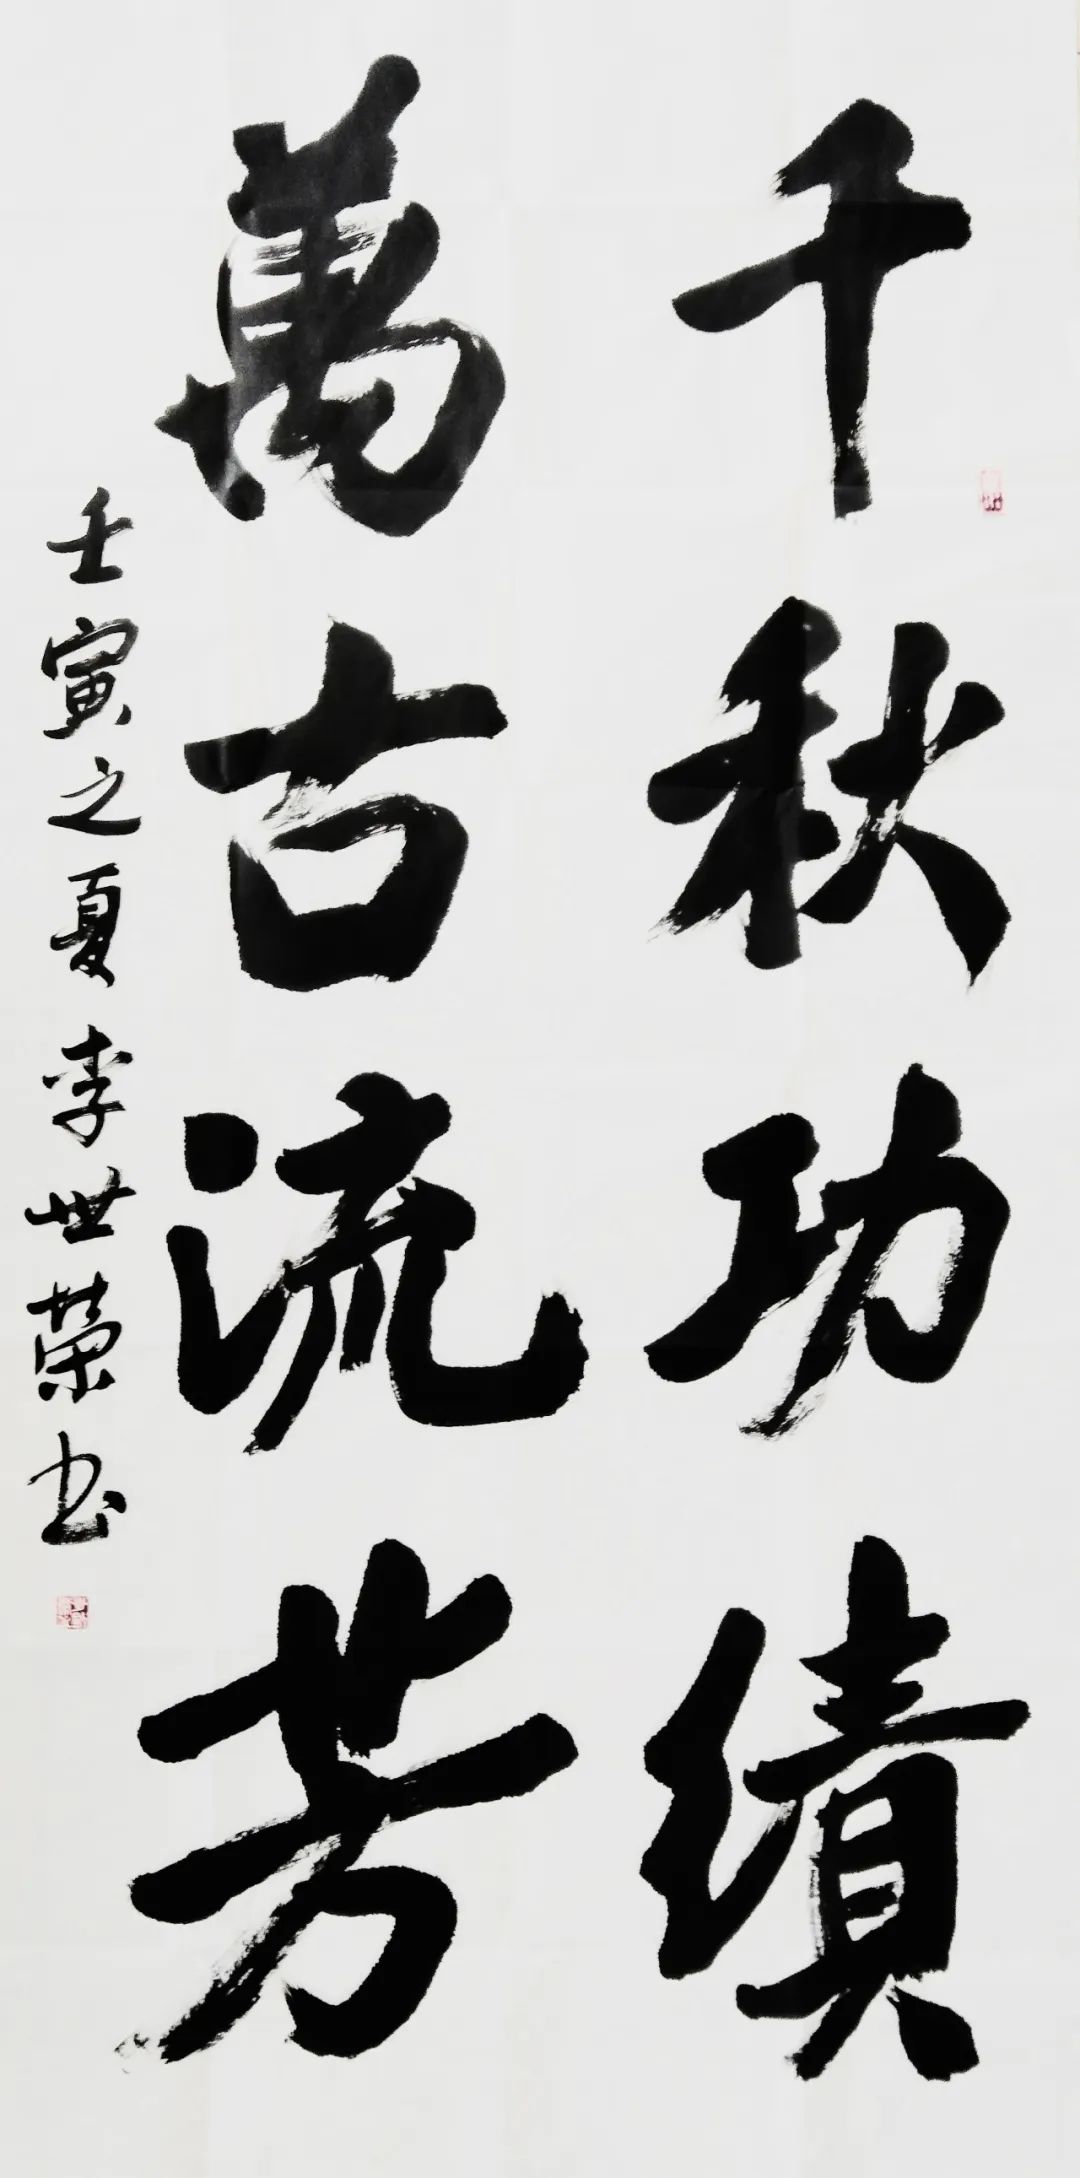 千秋功績
萬古流芳
壬寅之夏 李世荣书